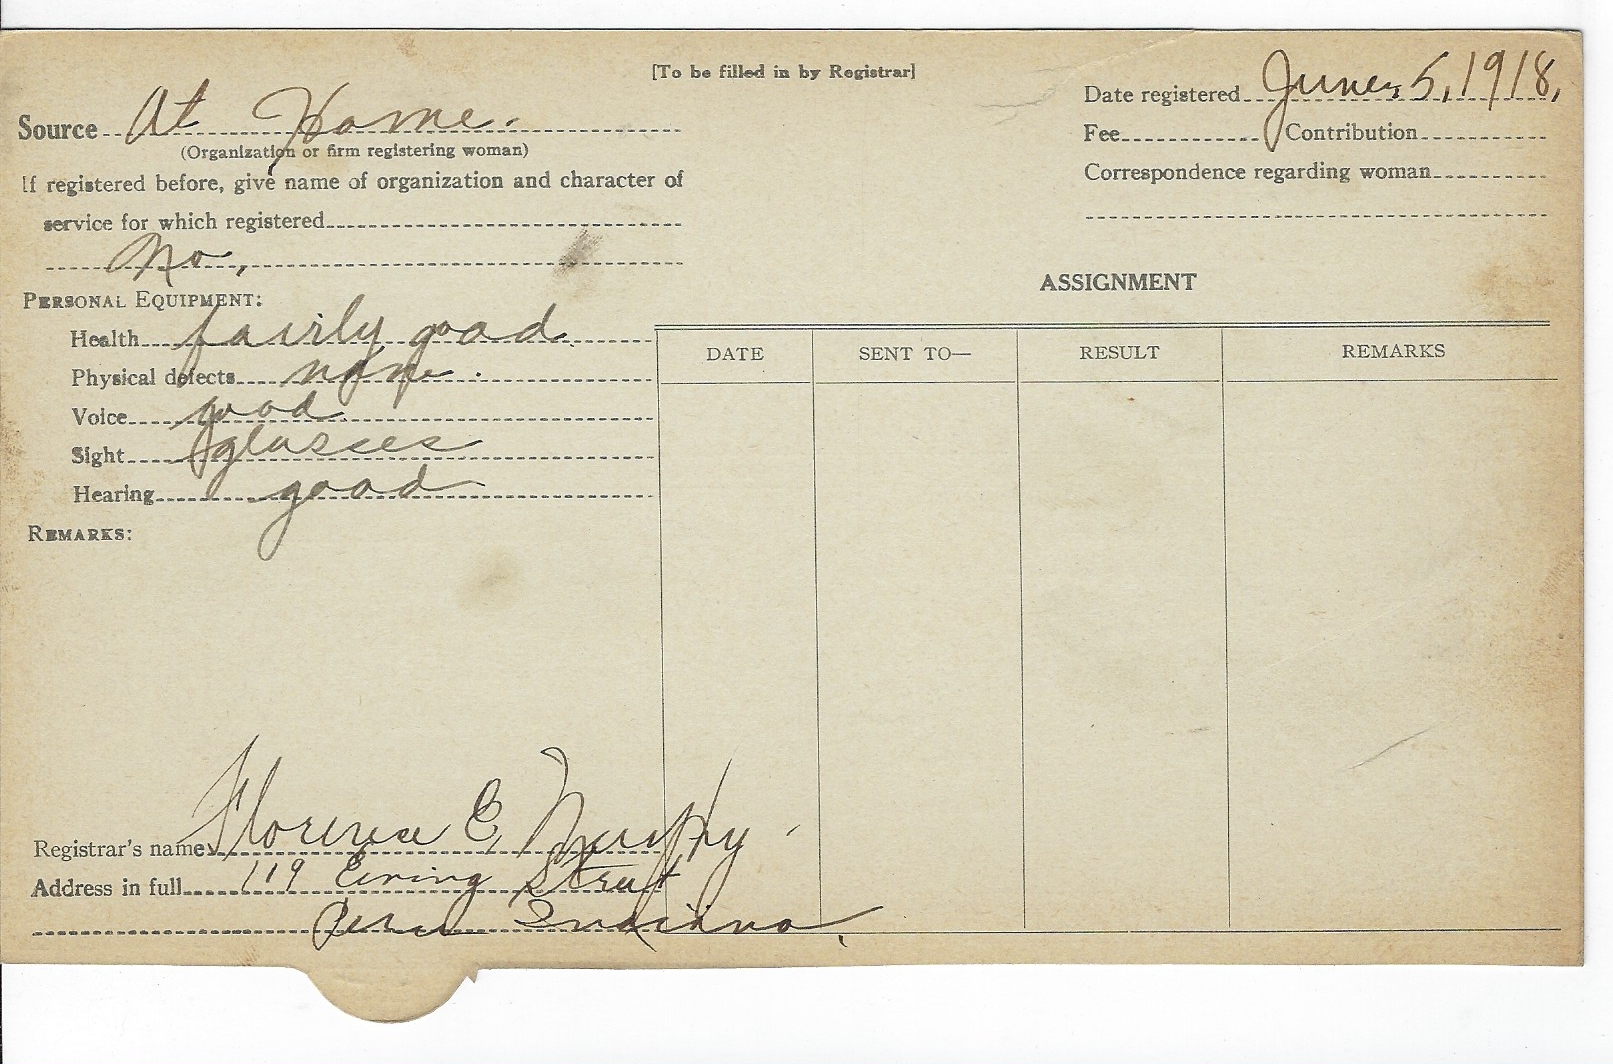 [To be filled in by Registrar]
Date registered June 5, 1918.
Source At Home.
(Organization or firm registering woman)
Fee Contribution
If registered before, give name of organization and character of
service for which registered
No,
Correspondence regarding woman
ASSIGNMENT
PERSONAL EQUIPMENT:
Health fairly good.
Physical defects none.
Voice good
Sight glasses
Hearing good
REMARKS:
DATE SENT TO— RESULT REMARKS
Registrar's name Florence E. Murphy
Address in full 119 Ewing Street
Peru Indiana.